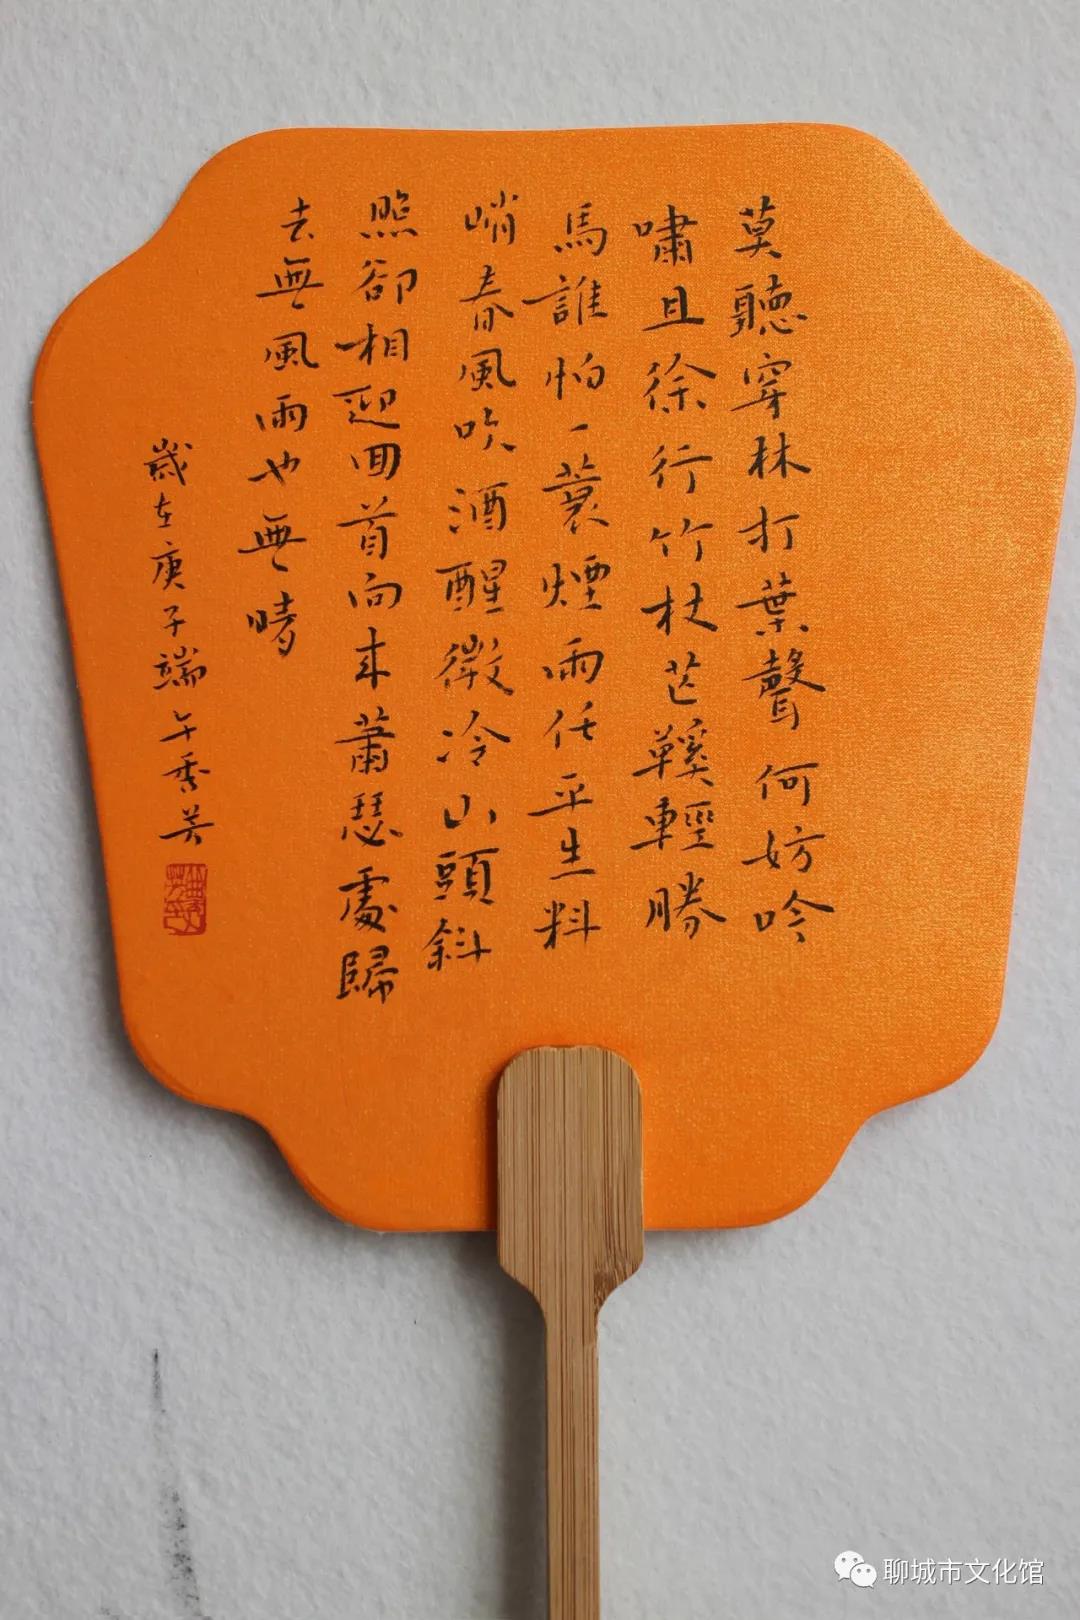 莫聽穿林打葉聲何妨吟
嘯且徐行竹杖芒鞵輕勝
馬誰怕一蓑煙雨任平生料
峭春風吹酒醒微冷山頭斜
照卻相迎回首向來蕭瑟處歸
去無風雨也無晴
歲在庚子端午
聊城市文化馆